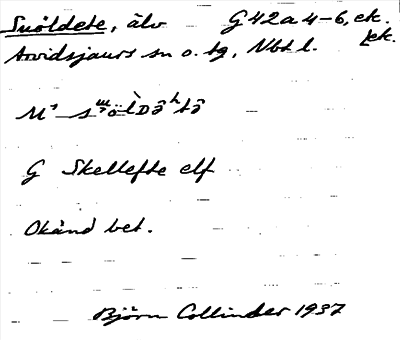 Suöldete, älv G 42a 4-6, ek.
Arvidsjaurs sn o. tg, Nbt l. ek.
G Skellefte elf
Okänd bet.
Björn Collinder 1937